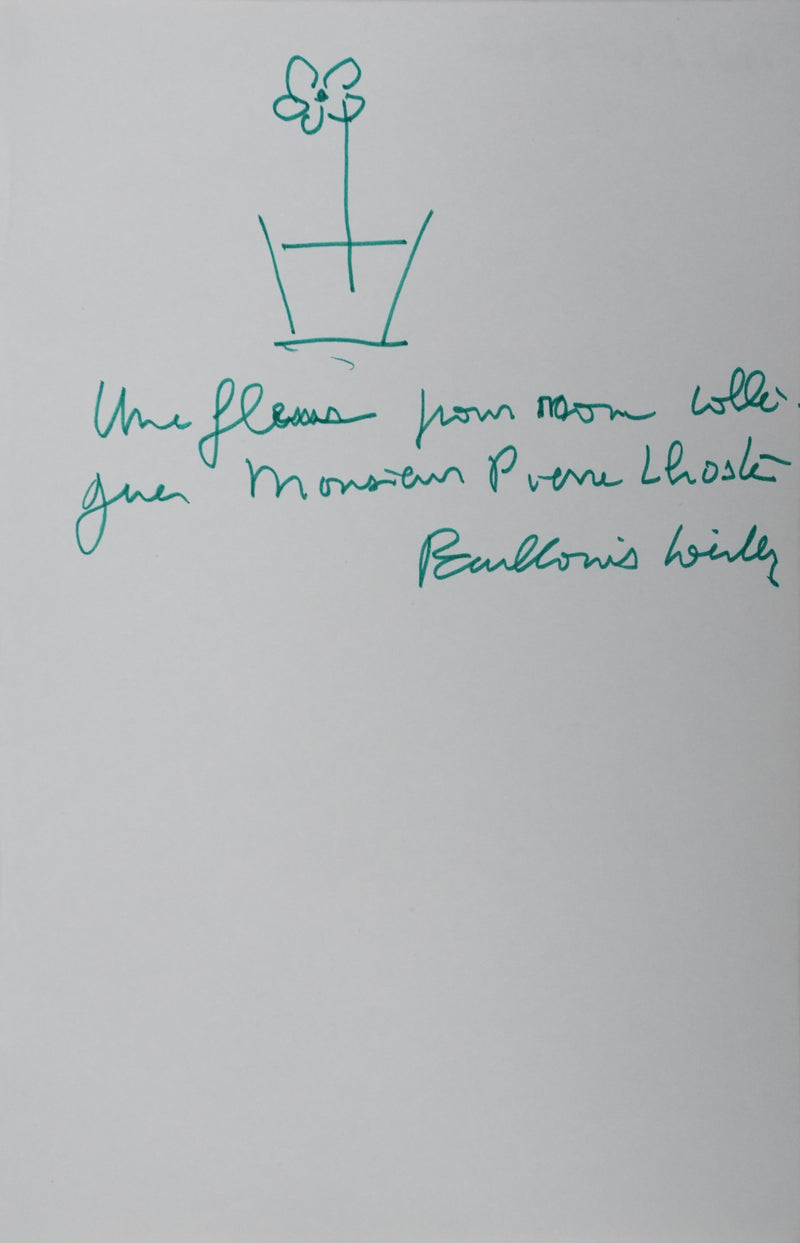 Une fleur pour mon collè-
gue Monsieur Pierre Lhoste
Paul Louis